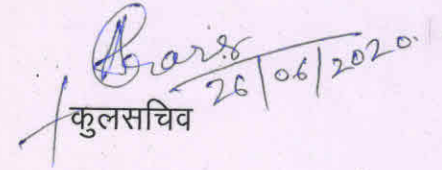 26/06/2020.
कुलसचिव